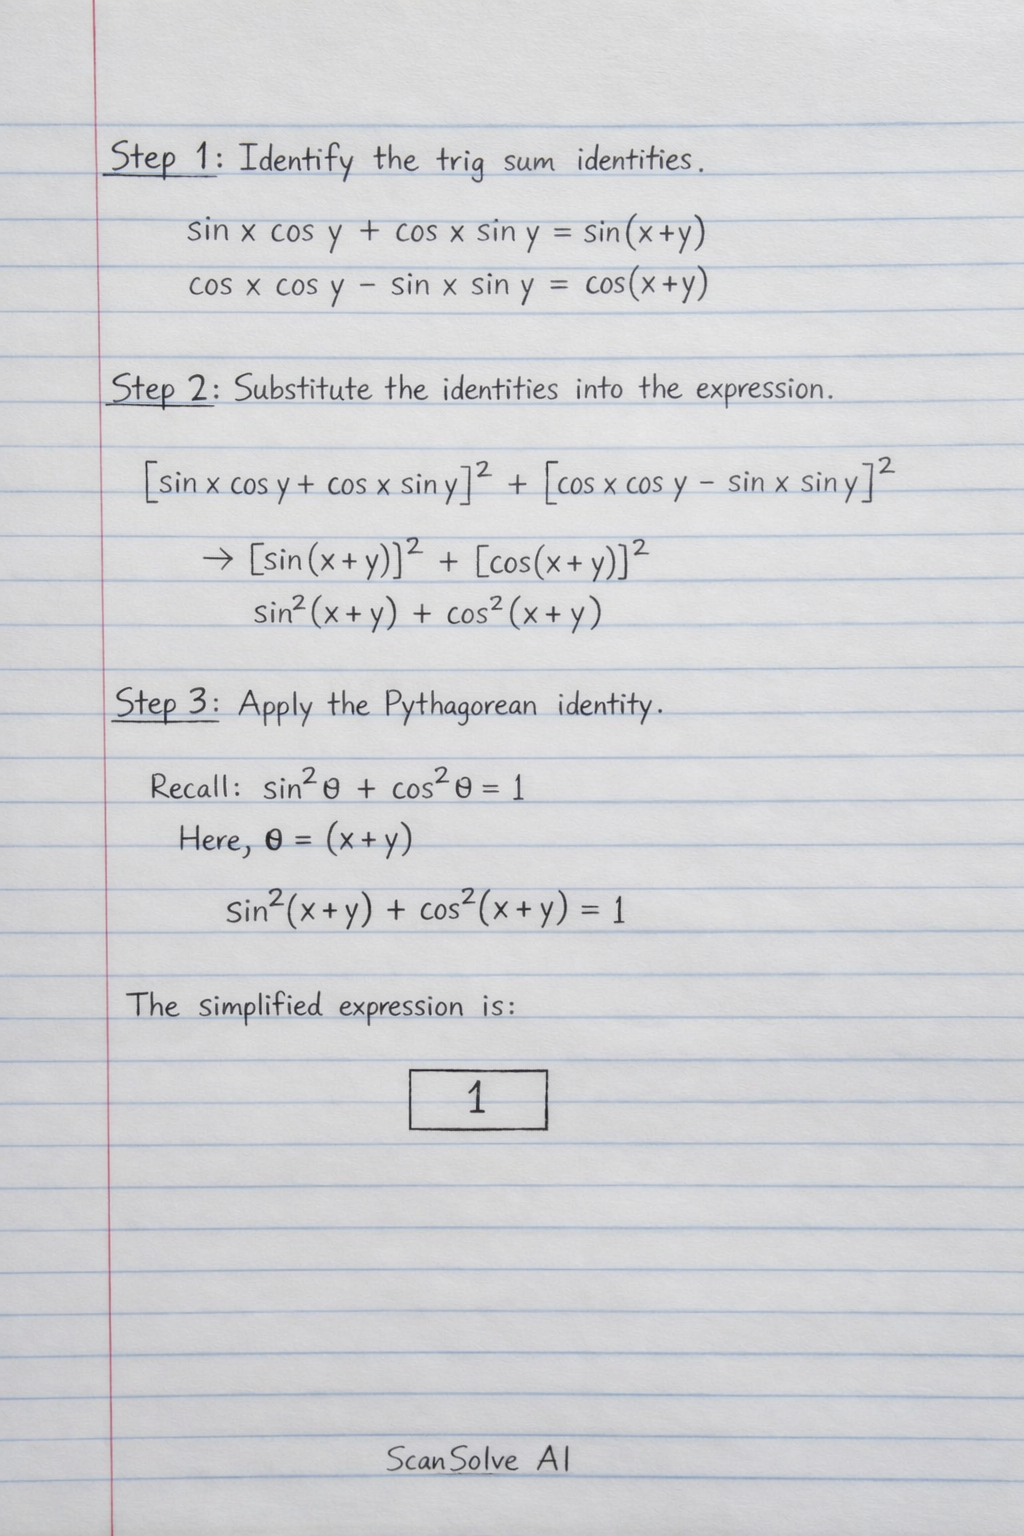 Step 1: Identify the trig sum identities.
sin x cos y + cos x sin y = sin(x+y)
cos x cos y − sin x sin y = cos(x+y)
Step 2: Substitute the identities into the expression.
[sin x cos y + cos x sin y]² + [cos x cos y − sin x sin y]²
→ [sin(x+y)]² + [cos(x+y)]²
sin²(x+y) + cos²(x+y)
Step 3: Apply the Pythagorean identity.
Recall: sin²θ + cos²θ = 1
Here, θ = (x+y)
sin²(x+y) + cos²(x+y) = 1
The simplified expression is:
1
ScanSolve AI